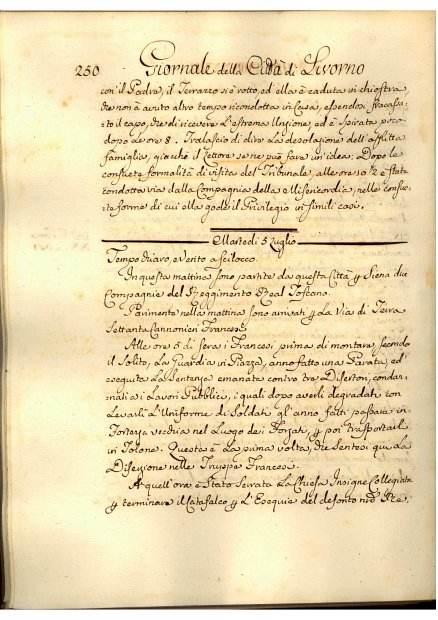 250 Giornale della Città di Livorno
con il Padre, il Terrazzo si è rotto, ed ella è caduta in chiostra,
che non à avuto altro tempo ricondotta in Casa, essendosi fracassa-
to il capo, che di ricevere L'estrema Unzione, ed è spirata poco
dopo le ore 8. Tralascio di dire La desolazione dell'afflitta
famiglia, giacchè il Lettore se ne può fare un'idea. Dopo le
consuete formalità di visita del Tribunale, alle ore 10 ½ è stata
condotta via dalla Compagnia della Misericordia, nelle consue-
te forme di cui ella gode il Privilegio in simili casi.
Martedì 5 Luglio
Tempo chiaro, e Vento a scilocco.
In questa mattina sono partite da questa Città p Siena due
Compagnie del Reggimento Real Toscano.
Parimente nella mattina sono arrivati p La Via di Terra
Settanta Cannonieri Francesi.
Alle ore 5 di sera i Francesi, prima di montare, secondo
il Solito, La Guardia in Piazza, anno fatto una Parata, ed
eseguita La Sentenza emanata contro tre Disertori, condan-
nati a i Lavori Pubblici, i quali dopo averli degradati con
Levarli L'Uniforme di Soldati gl'anno fatti passare in
Fortezza vecchia nel Luogo dei Forzati p poi trasportarli
in Tolone. Questa è La prima volta, che Sentesi qui La
Diserzione nelle Truppe Francesi.
A quell'ora è Stata Serrata La Chiesa Insigne Collegiata
p terminare il Catafalco p L'Esequie del defonto nro Re.